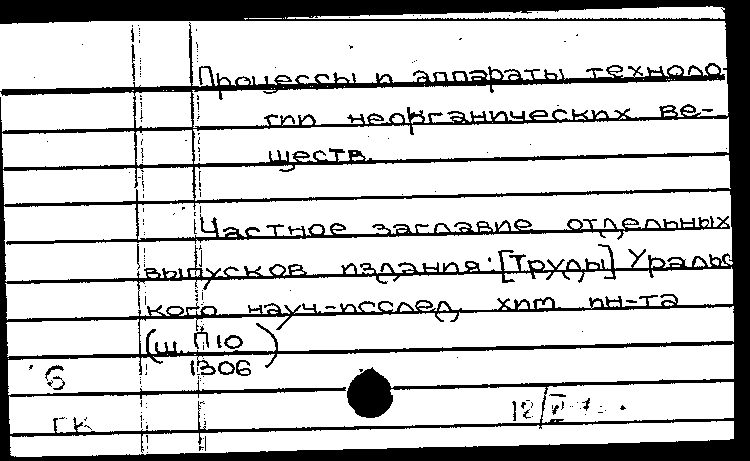 Процессы и аппараты техноло-
гии неорганических ве-
ществ.
Частное заглавие отдельных
выпусков издания: [Труды] Уральс
кого науч.-исслед. хим ин-та
(ш. П10
1306)
6
ГК
12/VI